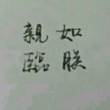 如朕
親臨